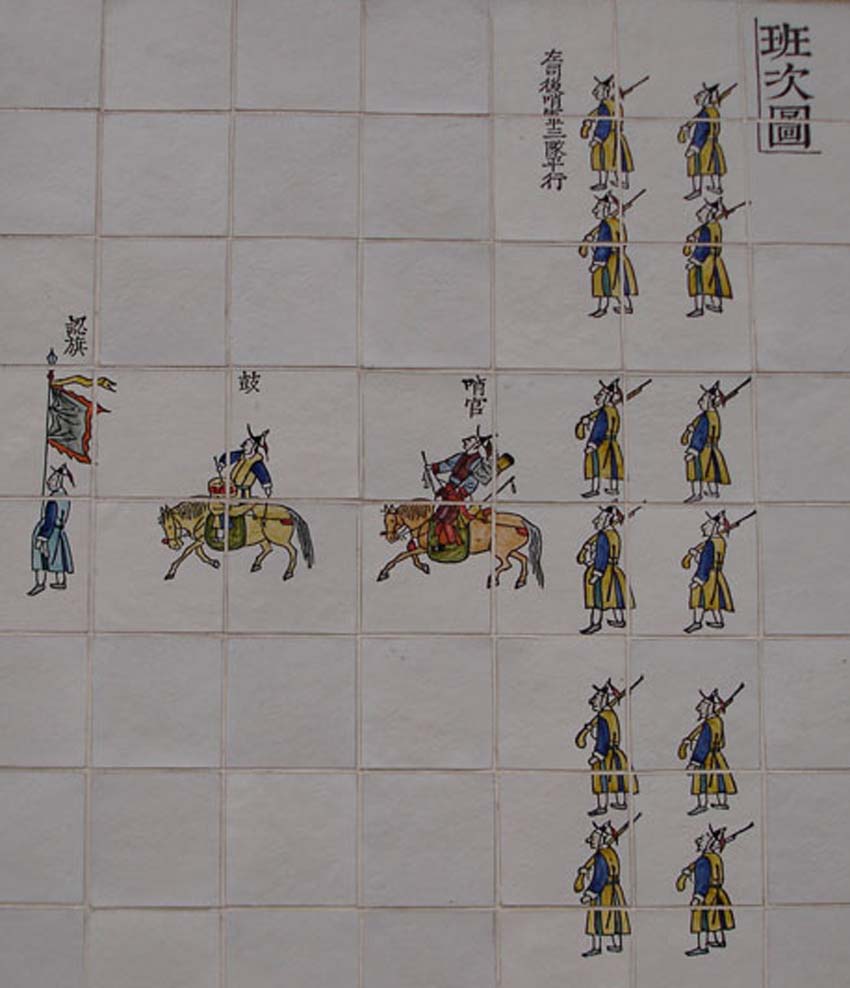 班次圖
左司後哨軍三隊平行
哨官
鼓
認旗